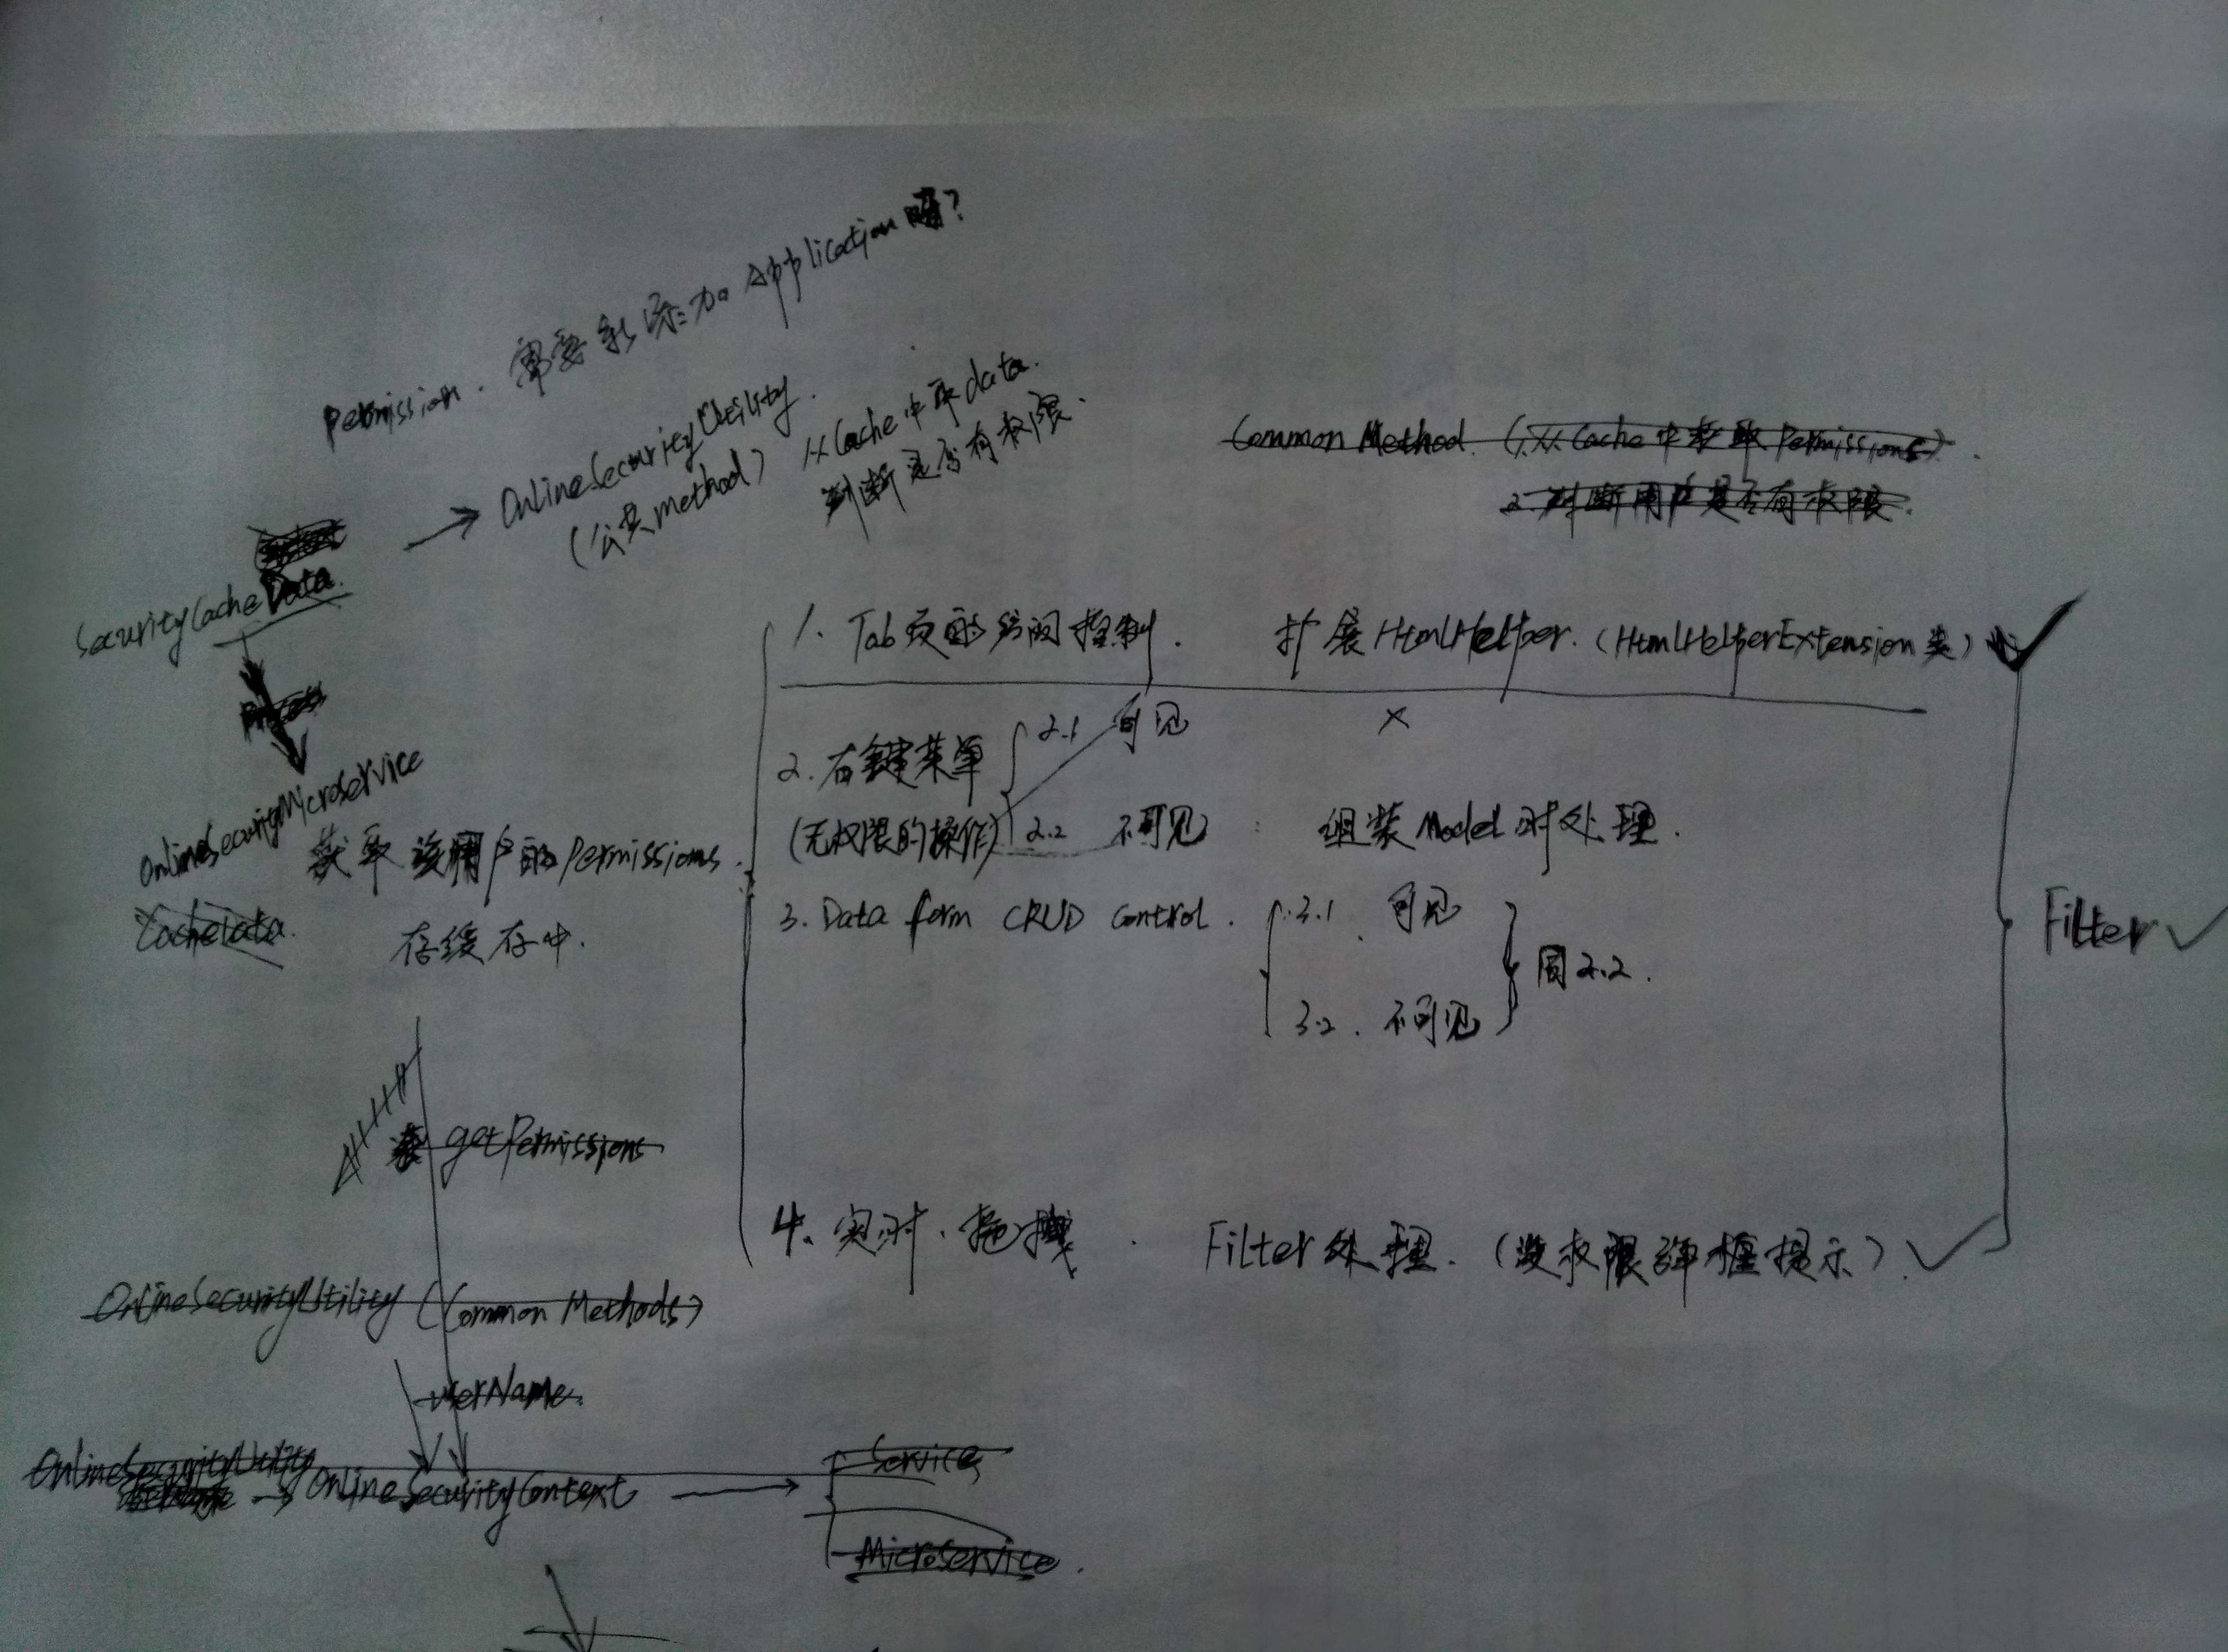 Permission. 需要新添加 Application 吗?
→ OnlineSecurityUtility.
(公共method) 从Cache中取data.
判断是否有权限.
Common Method (1.从Cache中获取Permissions).
2.判断用户是否有权限.
SecurityCacheData.
OnlineSecurityMicroservice
获取该用户的Permissions.
存缓存中.
CacheData.
1. Tab页的访问控制. 扩展HtmlHelper. (HtmlHelperExtension类) ✓
2. 右键菜单 2.1 可见 ×
(无权限的操作) 2.2 不可见 : 组装Model时处理.
3. Data form CRUD control. 3.1 可见
3.2. 不可见
同2.2.
Filter ✓
getPermissions
4. 实时、拖拽. Filter处理. (没权限弹框提示). ✓
OnlineSecurityUtility (Common Methods)
userName.
OnlineSecurityUtility
→ OnlineSecurityContext →
Service
Microservice.